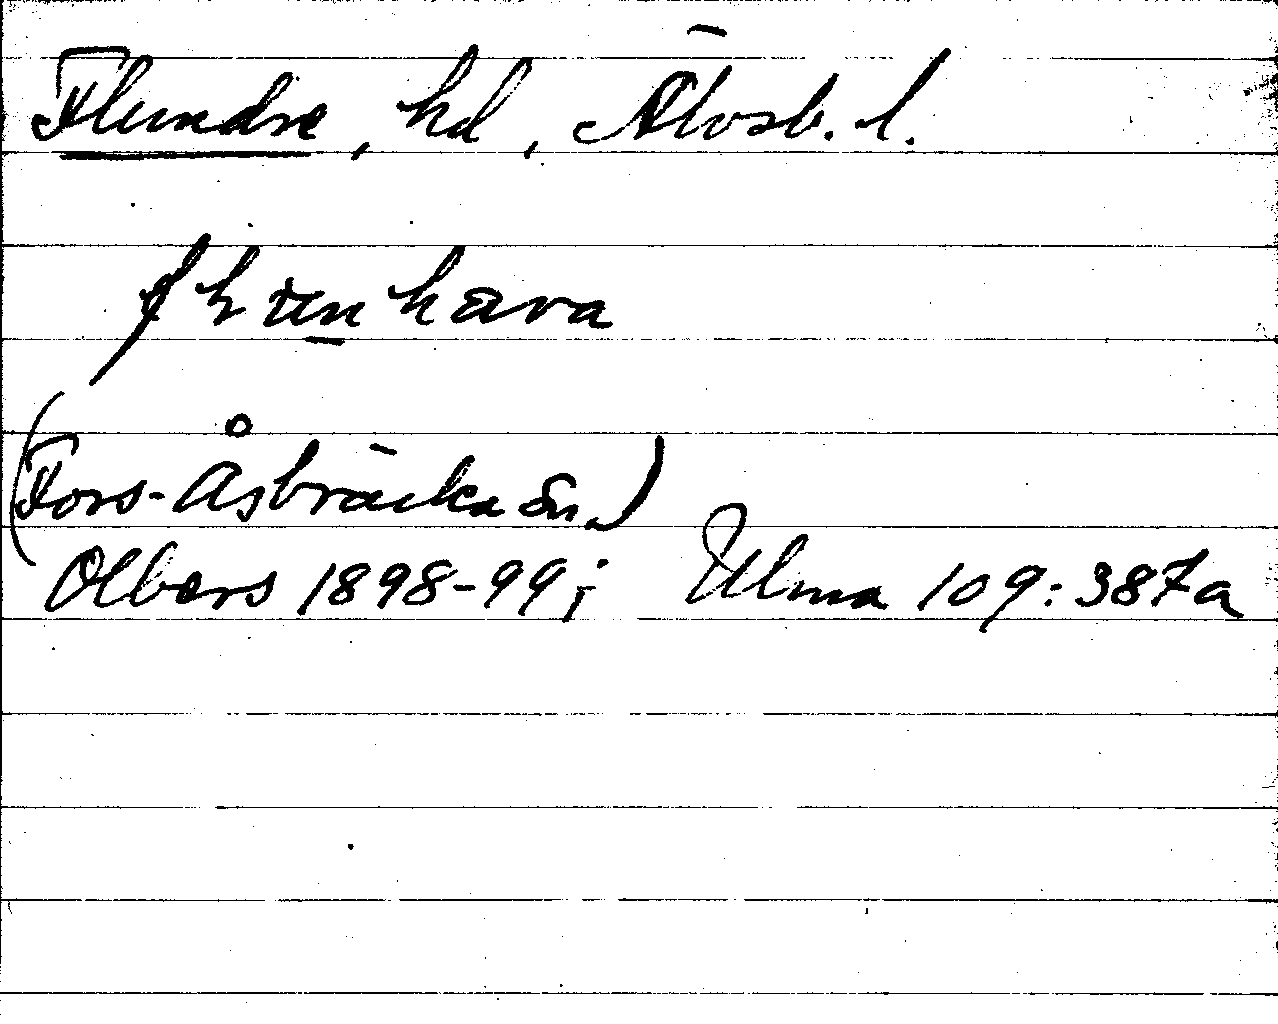 Flundre, hd, Älvsb. l.
(Fors-Åsbräcka sn.)
Olbers 1898-99; Ulma 109:387a